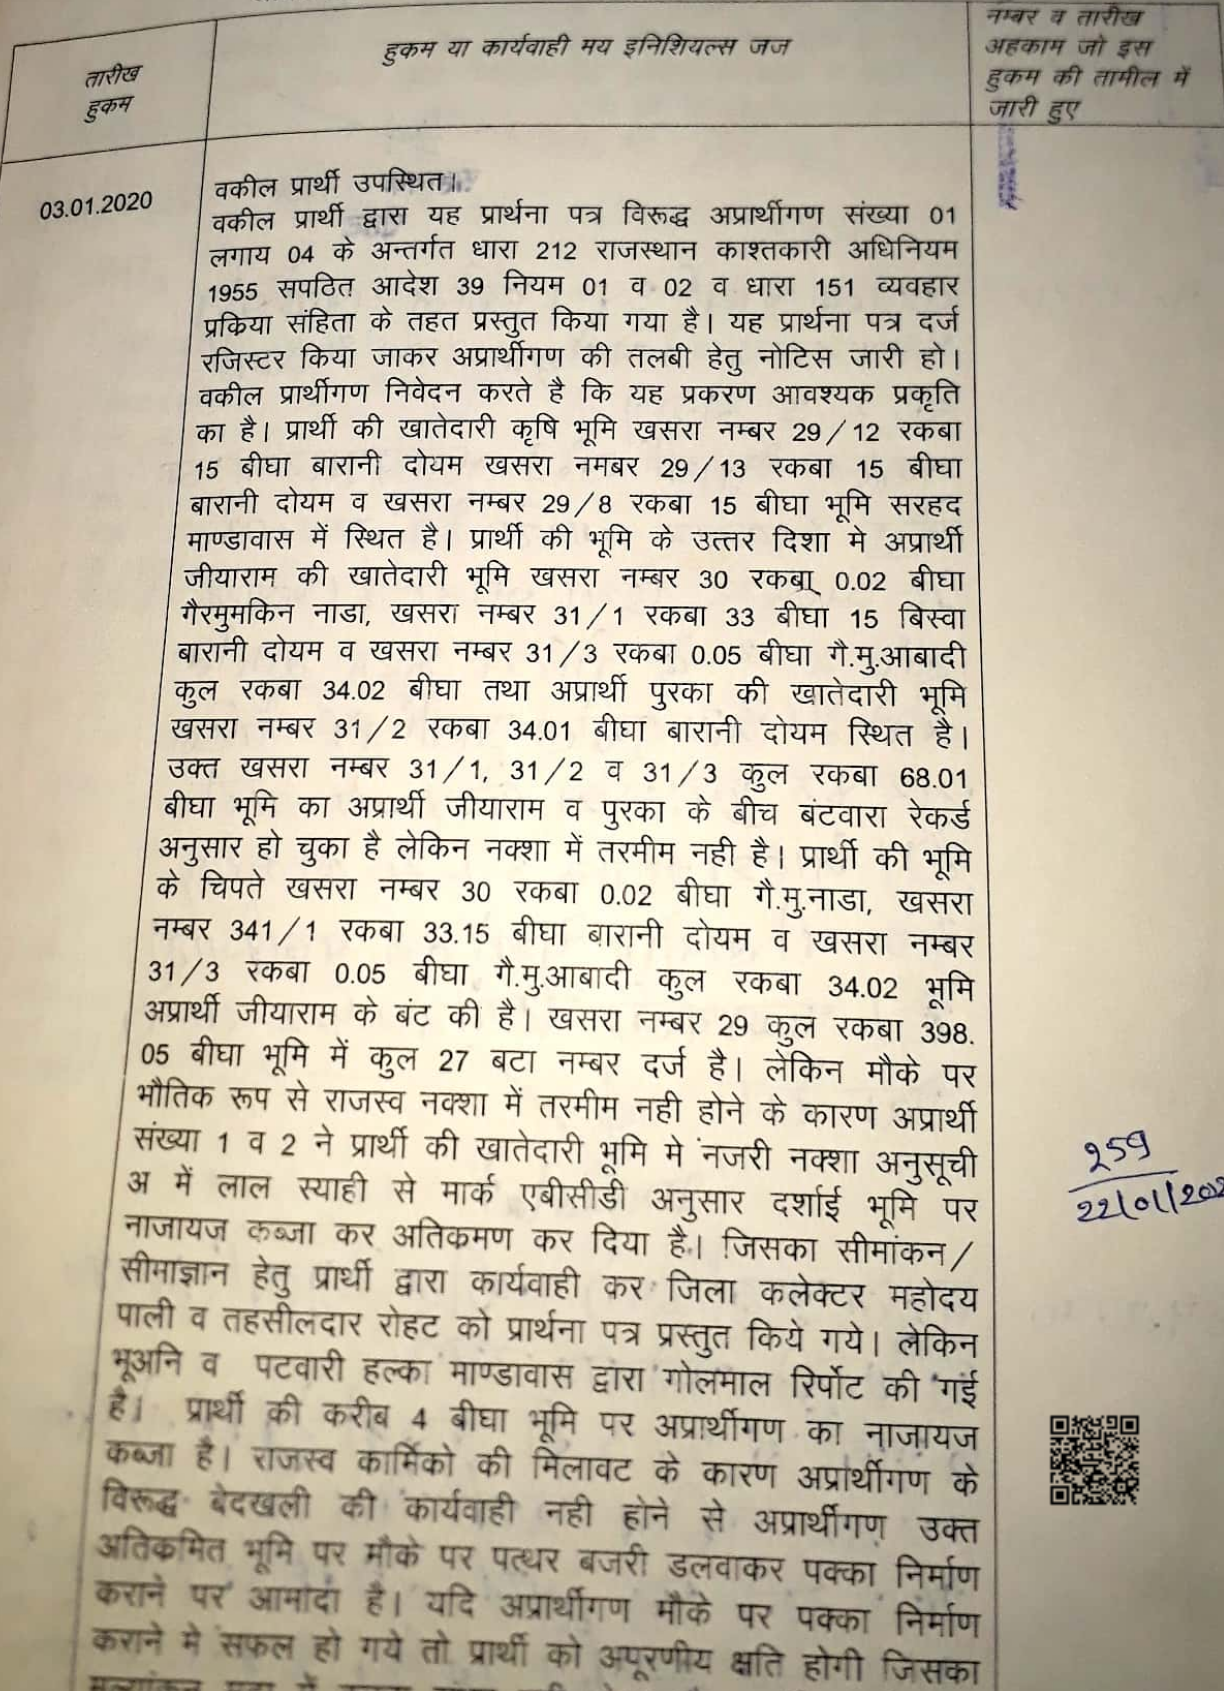 तारीख
हुकम
हुकम या कार्यवाही मय इनिशियल्स जज
नम्बर व तारीख
अहकाम जो इस
हुकम की तामील में
जारी हुए
03.01.2020
वकील प्रार्थी उपस्थित।
वकील प्रार्थी द्वारा यह प्रार्थना पत्र विरूद्ध अप्रार्थीगण संख्या 01
लगाय 04 के अन्तर्गत धारा 212 राजस्थान काश्तकारी अधिनियम
1955 सपठित आदेश 39 नियम 01 व 02 व धारा 151 व्यवहार
प्रकिया संहिता के तहत प्रस्तुत किया गया है। यह प्रार्थना पत्र दर्ज
रजिस्टर किया जाकर अप्रार्थीगण की तलबी हेतु नोटिस जारी हो।
वकील प्रार्थीगण निवेदन करते है कि यह प्रकरण आवश्यक प्रकृति
का है। प्रार्थी की खातेदारी कृषि भूमि खसरा नम्बर 29/12 रकबा
15 बीघा बारानी दोयम खसरा नमबर 29/13 रकबा 15 बीघा
बारानी दोयम व खसरा नम्बर 29/8 रकबा 15 बीघा भूमि सरहद
माण्डावास में स्थित है। प्रार्थी की भूमि के उत्तर दिशा मे अप्रार्थी
जीयाराम की खातेदारी भूमि खसरा नम्बर 30 रकबा 0.02 बीघा
गैरमुमकिन नाडा, खसरा नम्बर 31/1 रकबा 33 बीघा 15 बिस्वा
बारानी दोयम व खसरा नम्बर 31/3 रकबा 0.05 बीघा गै.मु.आबादी
कुल रकबा 34.02 बीघा तथा अप्रार्थी पुरका की खातेदारी भूमि
खसरा नम्बर 31/2 रकबा 34.01 बीघा बारानी दोयम स्थित है।
उक्त खसरा नम्बर 31/1, 31/2 व 31/3 कुल रकबा 68.01
बीघा भूमि का अप्रार्थी जीयाराम व पुरका के बीच बंटवारा रेकर्ड
अनुसार हो चुका है लेकिन नक्शा में तरमीम नही है। प्रार्थी की भूमि
के चिपते खसरा नम्बर 30 रकबा 0.02 बीघा गै.मु.नाडा, खसरा
नम्बर 341/1 रकबा 33.15 बीघा बारानी दोयम व खसरा नम्बर
31/3 रकबा 0.05 बीघा गै.मु.आबादी कुल रकबा 34.02 भूमि
अप्रार्थी जीयाराम के बंट की है। खसरा नम्बर 29 कुल रकबा 398.
05 बीघा भूमि में कुल 27 बटा नम्बर दर्ज है। लेकिन मौके पर
भौतिक रूप से राजस्व नक्शा में तरमीम नही होने के कारण अप्रार्थी
संख्या 1 व 2 ने प्रार्थी की खातेदारी भूमि मे नजरी नक्शा अनुसूची
अ में लाल स्याही से मार्क एबीसीडी अनुसार दर्शाई भूमि पर
नाजायज कब्जा कर अतिकमण कर दिया है। जिसका सीमांकन/
सीमाज्ञान हेतु प्रार्थी द्वारा कार्यवाही कर जिला कलेक्टर महोदय
पाली व तहसीलदार रोहट को प्रार्थना पत्र प्रस्तुत किये गये। लेकिन
भूअनि व पटवारी हल्का माण्डावास द्वारा गोलमाल रिर्पोट की गई
है। प्रार्थी की करीब 4 बीघा भूमि पर अप्रार्थीगण का नाजायज
कब्जा है। राजस्व कार्मिको की मिलावट के कारण अप्रार्थीगण के
विरूद्ध बेदखली की कार्यवाही नही होने से अप्रार्थीगण उक्त
अतिकमित भूमि पर मौके पर पत्थर बजरी डलवाकर पक्का निर्माण
कराने पर आमादा है। यदि अप्रार्थीगण मौके पर पक्का निर्माण
कराने मे सफल हो गये तो प्रार्थी को अपूरणीय क्षति होगी जिसका
259
22/01/202